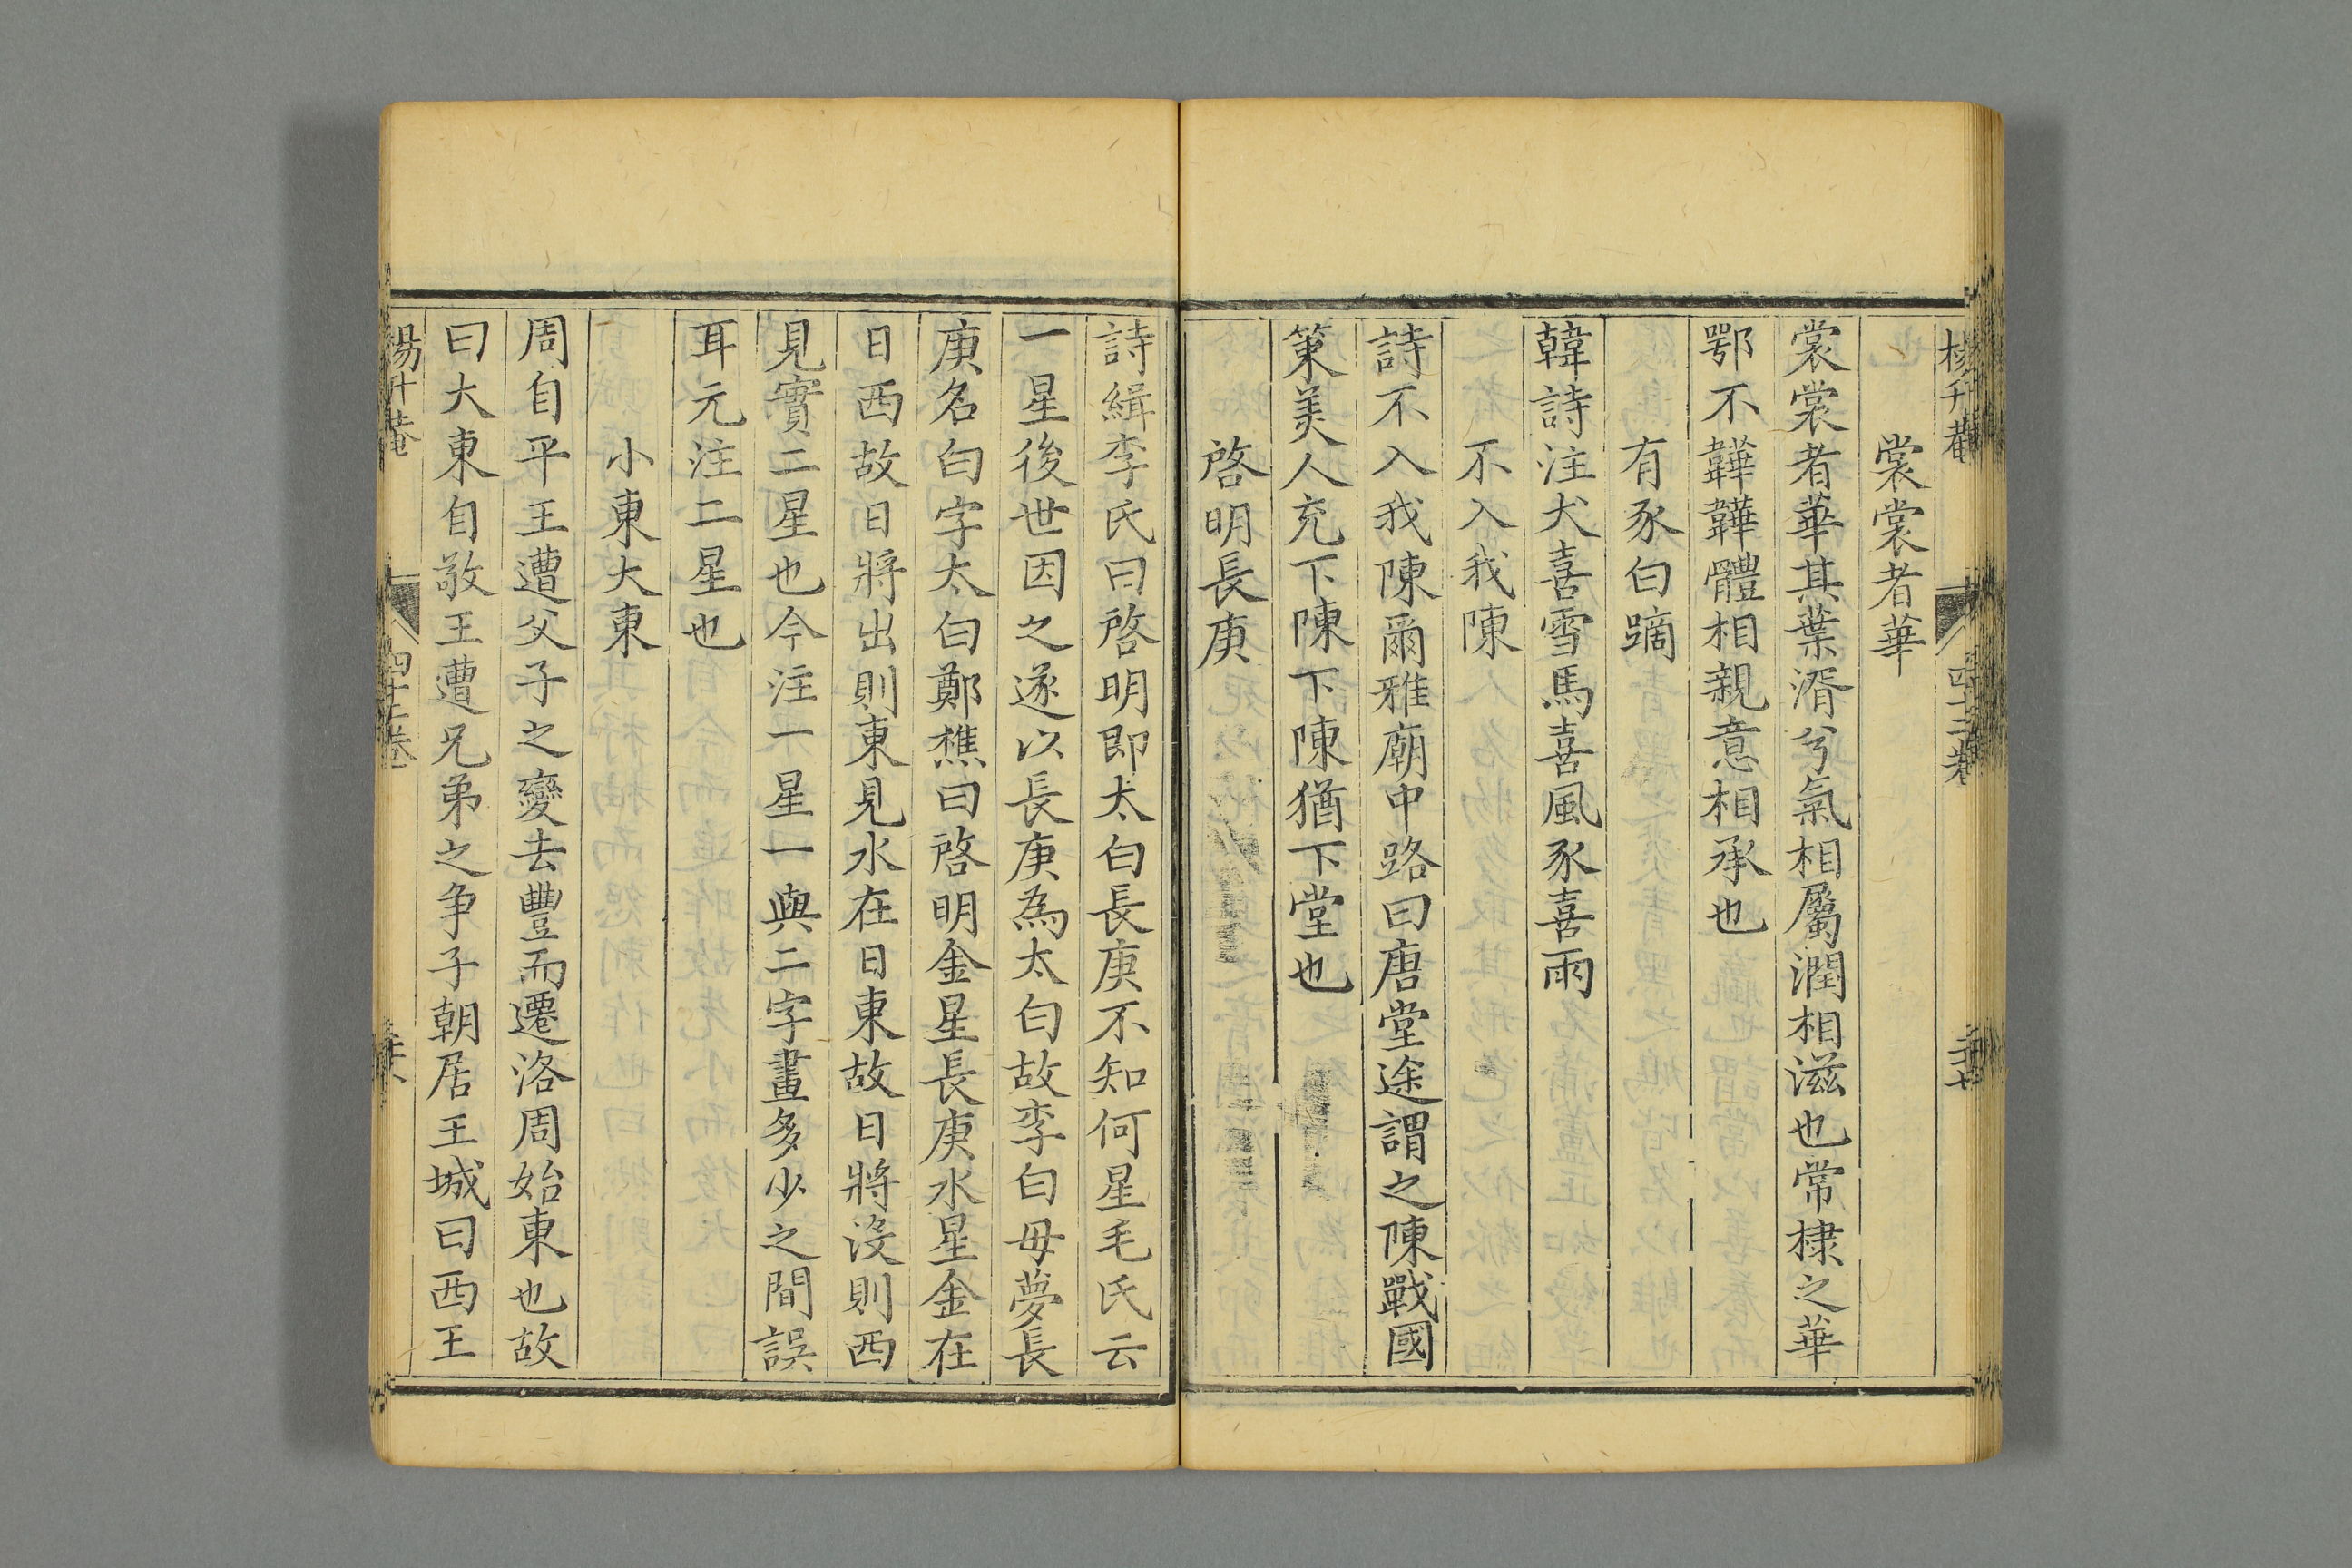 楊升菴 四十二卷
裳裳者華
裳裳者華其葉湑兮氣相屬潤相滋也常棣之華
鄂不韡韡體相親意相承也
有豕白蹢
韓詩注犬喜雪馬喜風豕喜雨
不入我陳
詩不入我陳爾雅廟中路曰唐堂途謂之陳戰國
策美人充下陳下陳猶下堂也
啓明長庚
詩緝李氏曰啓明即太白長庚不知何星毛氏云
一星後世因之遂以長庚為太白故李白母夢長
庚名白字太白鄭樵曰啓明金星長庚水星金在
日西故日將出則東見水在日東故日將沒則西
見實二星也今注一星一與二字畫多少之間誤
耳元注二星也
小東大東
周自平王遭父子之變去豐而遷洛周始東也故
曰大東自敬王遭兄弟之争子朝居王城曰西王
楊升菴 四十二卷